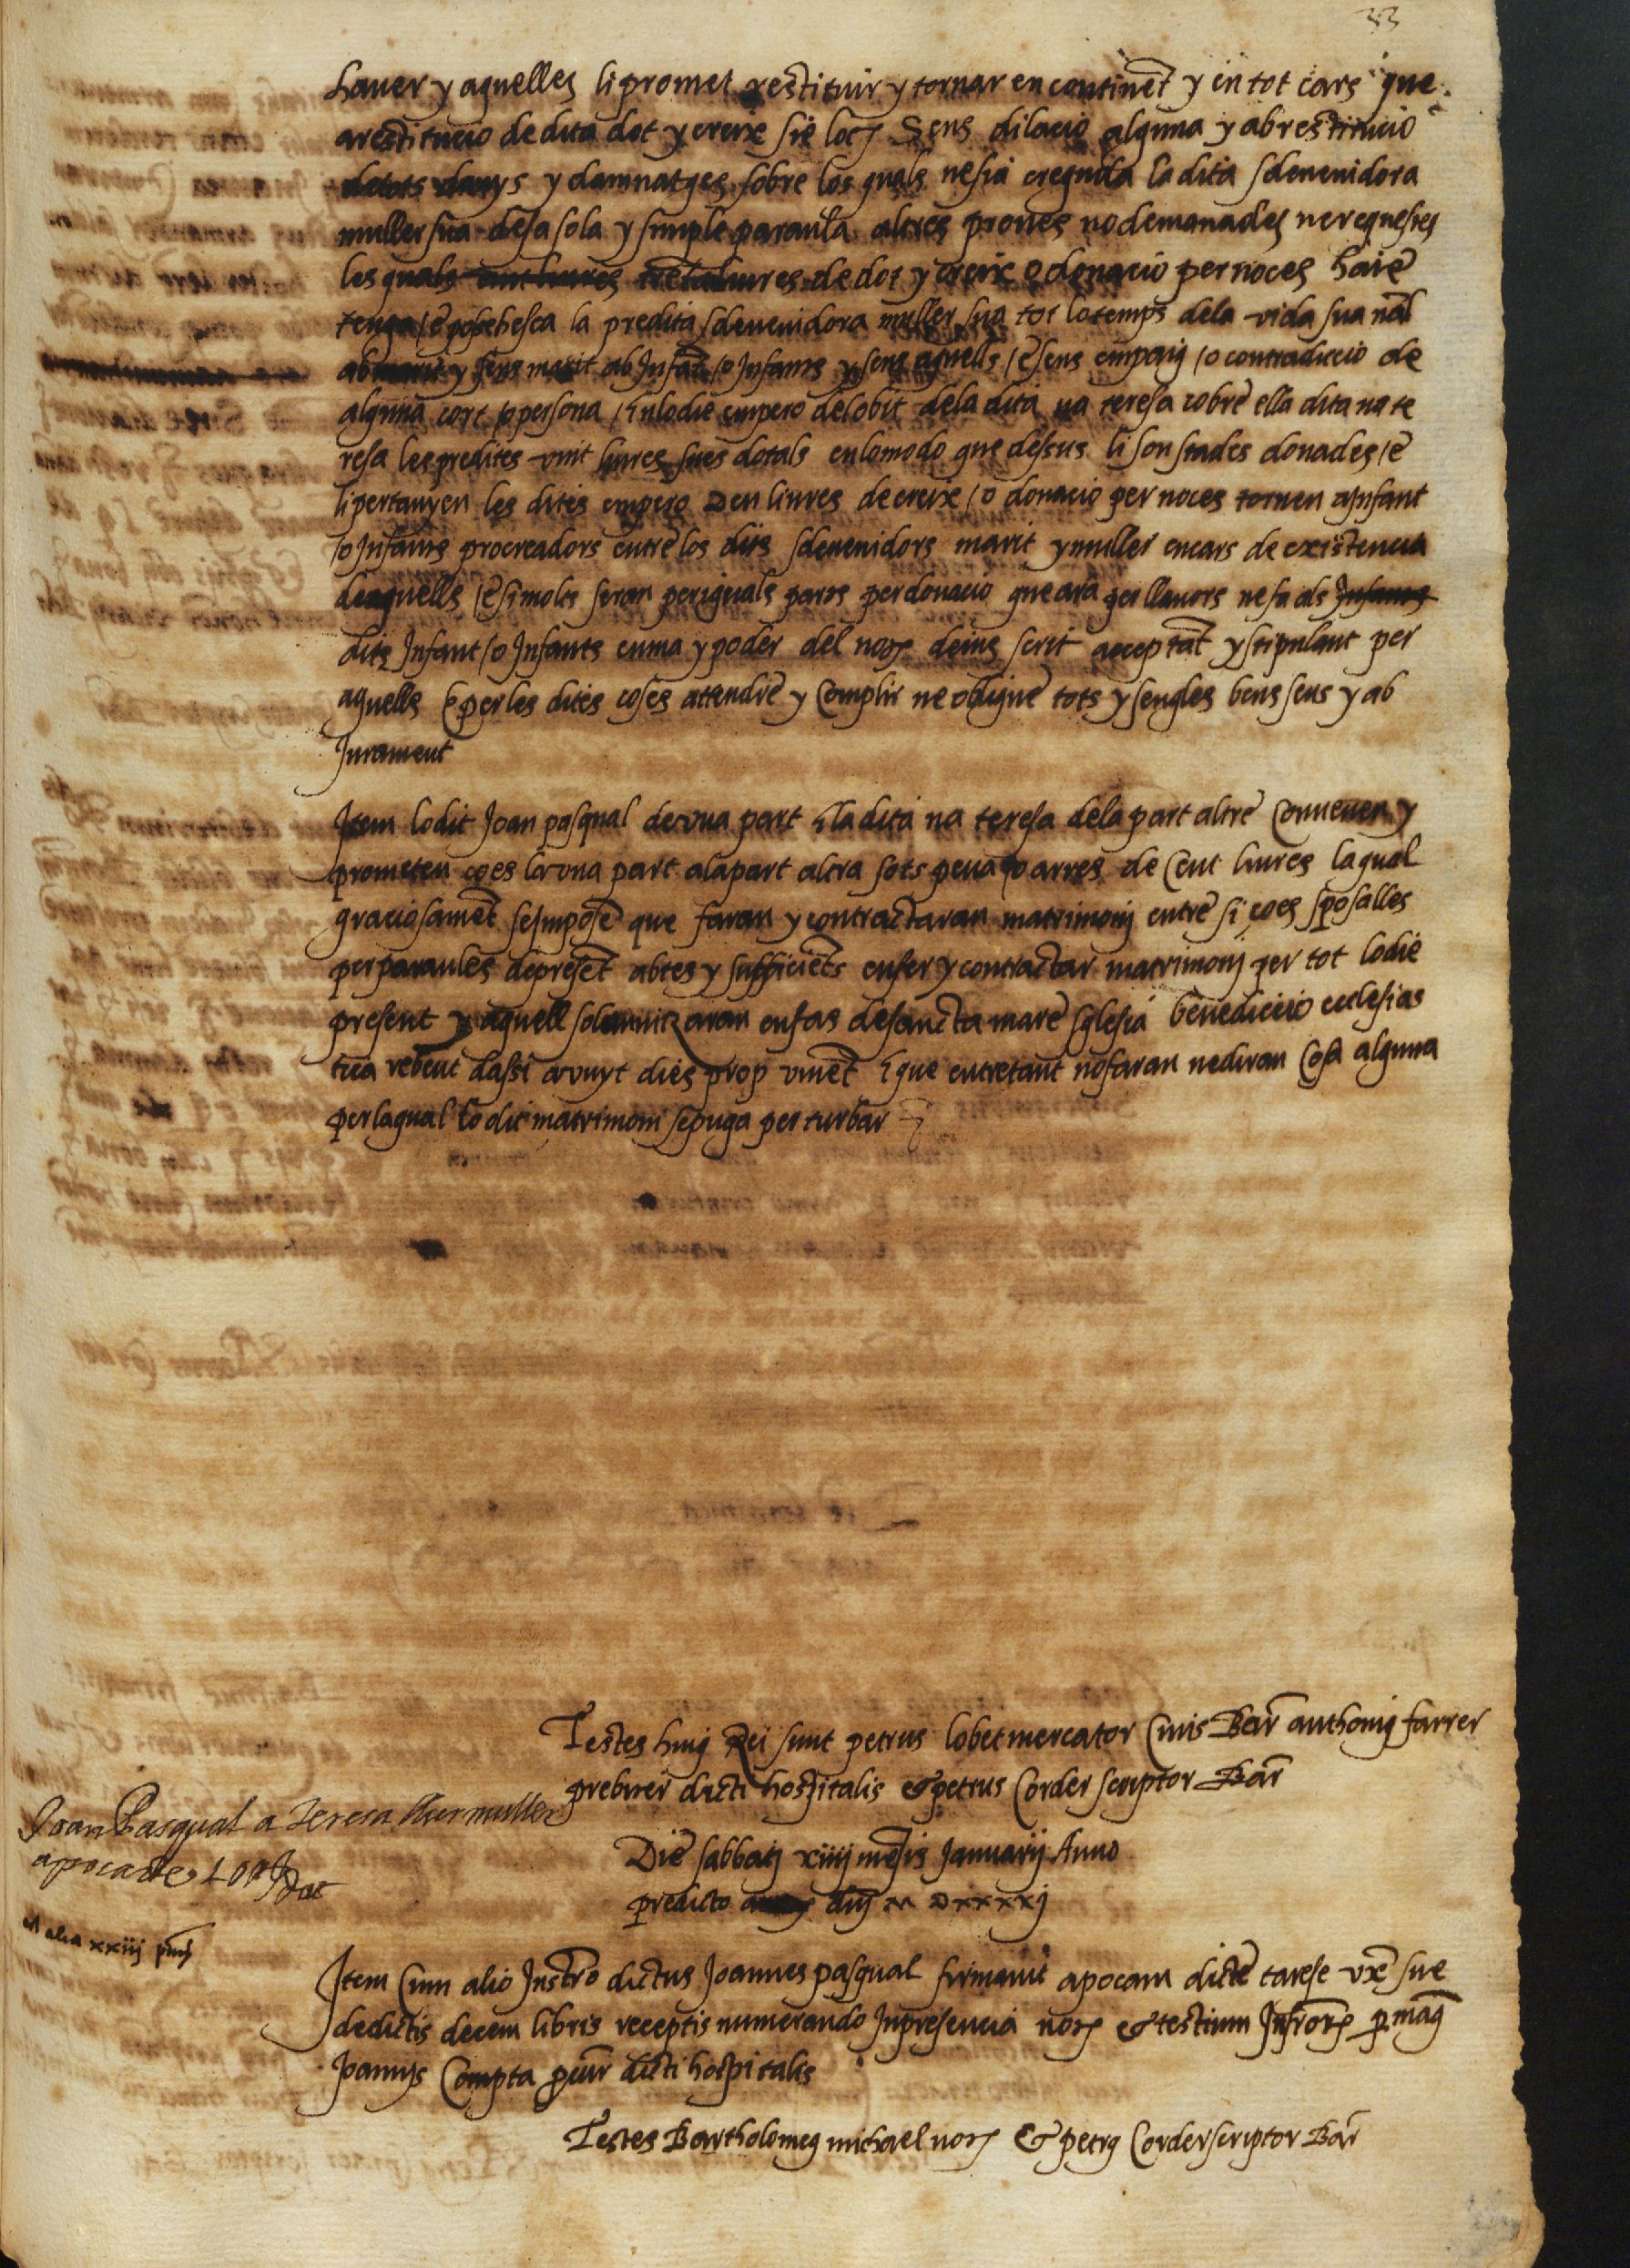 33
haver y aquelles li promet restituir y tornar en continẽt y en tot cars que
a restitucio de dita dot y creix sie loch Sens dilacio alguna y ab restitucio
de tots danys y damnatges sobre los quals ne sia creguda la dita sdevenidora
muller sua de sa sola y simple paraula altres proves no demanades ne requestes
les quals de dot y creix o donacio per noces haie
tenga /e possehesca la predita sdevenidora muller sua tot lo temps de la vida sua nal
ab marit y sens marit ab Infãt /o Infants y sens aquells /e sens empaig /o contradiccio de
alguna cort /o persona / En lo die empero del obit de la dita na teresa cobre ella dita na te
resa les predites vint liures sues dotals en lo modo que dessus li son stades donades /e
li pertanyen les dites empero Deu liures de creix /o donacio per noces tornen a Infant
/o Infants procreadors entre los dits sdevenidors marit y muller en cars de existencia
de aquells /e si molts seran per iguals parts per donacio que ara per llavors ne fa als Infants
dits Infant /o Infants en ma y poder del noť deius scrit acceptãt y stipulant per
aquells E per les dites coses attendre y Complir ne obligue tots y sengles bens seus y ab
Jurament
Item lo dit Joan pasqual de vna part E la dita na teresa de la part altre Convenen y
prometen ço es la vna part a la part altra sots pena /o arres de Cent liures la qual
graciosamẽt se Imposẽ que faran y contractaran matrimonj entre si ço es sposalles
per paraules de presẽt abtes y sufficiẽts en fer y contractar matrimonj per tot lo die
present y aquell solemnizaran en fas de sancta mare sglesia benediccio ecclesias
tica rebent dassi a vuyt dies prop vinẽt E que entretant no faran ne diran Cosa alguna
per la qual lo dit matrimoni se puga perturbar
Testes huiꝯ Rei sunt petrus lobet mercator Civis Bar̃ anthoniꝯ farrer
prebrer dicti hospitalis et petrus Corder scriptor Bar̃
Joan Pasqual a Teresa sa muller
apoca de 10 ll
Die sabbatj xiiij mẽsis Januarij Anno
predicto dñj M Dxxxxj
xxiij
Item Cum alio Instrõ dictus Joannes pasqual firmavit apocam dicte tarese vxẽ sue
de dictis decem libris receptis numerando In presencia noť et testium Infrõrꝫ p mag̃
Joannis Compta priur̃ dicti hospitalis
Testes Bartholomeꝯ michael noť et petrꝯ Corder scriptor Bar̃